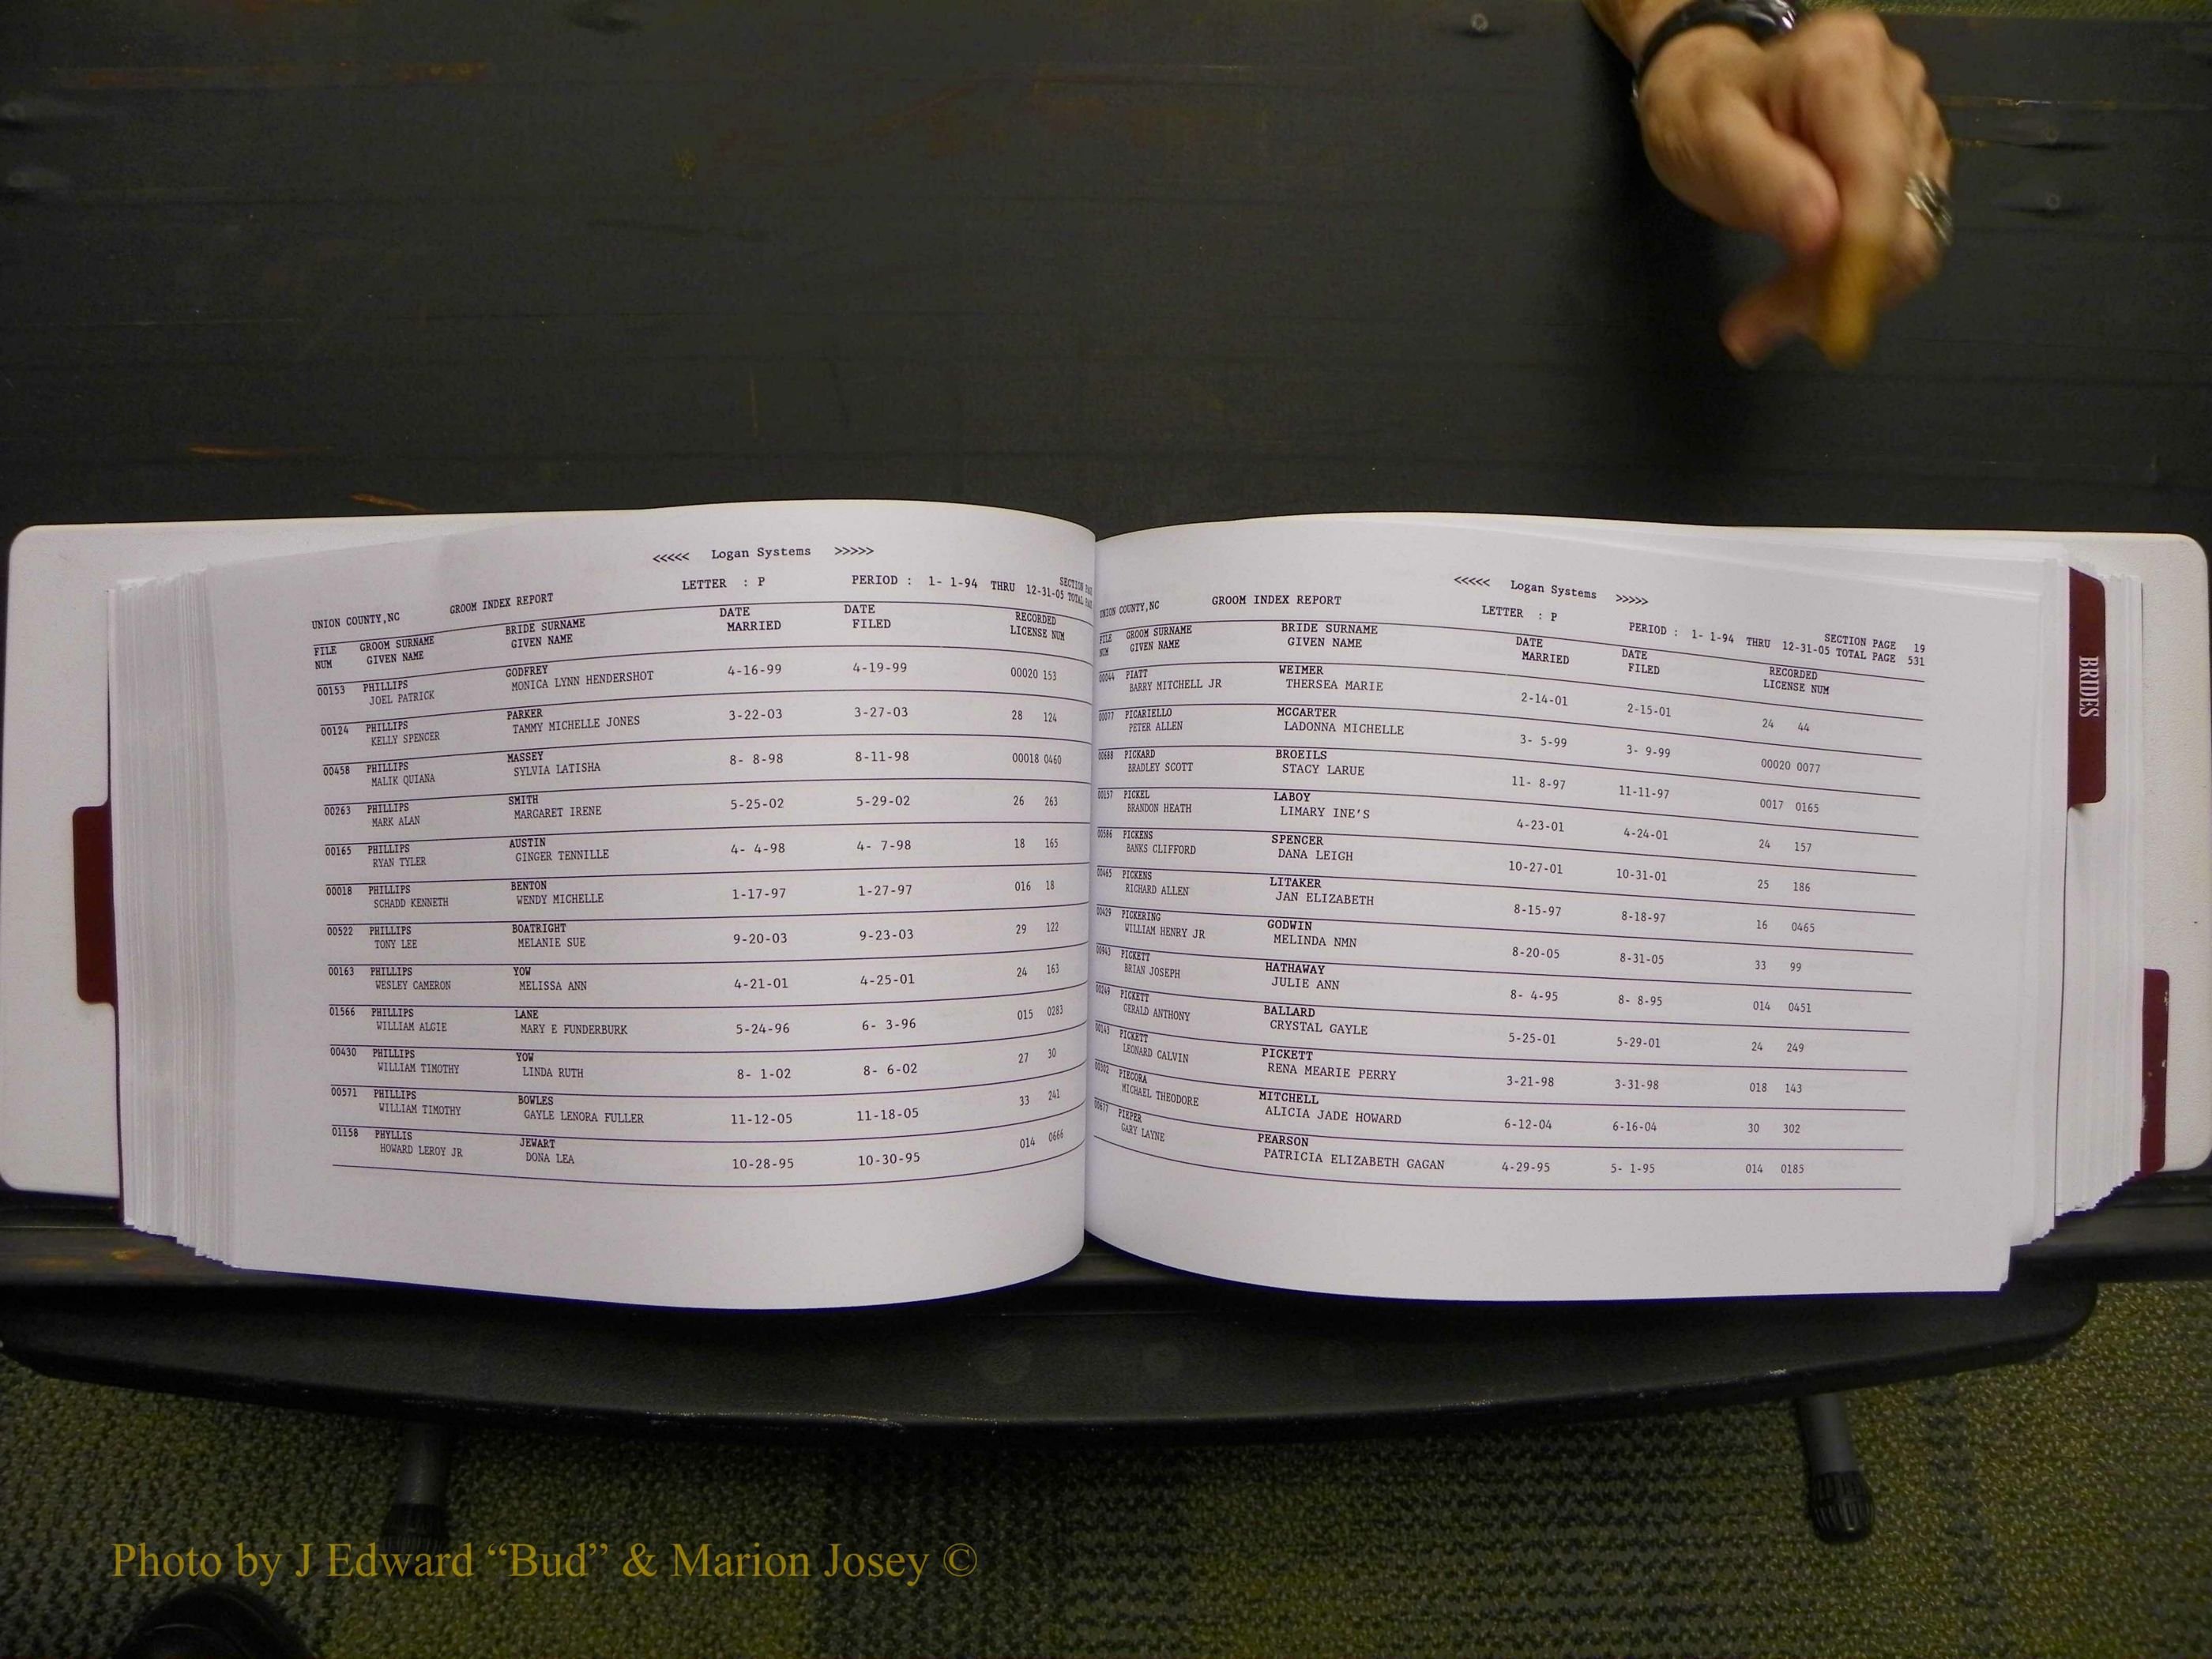 <<<<< Logan Systems >>>>>
UNION COUNTY,NC GROOM INDEX REPORT LETTER : P PERIOD : 1- 1-94 THRU 12-31-05 SECTION
TOTAL
FILE GROOM SURNAME BRIDE SURNAME DATE DATE RECORDED
NUM GIVEN NAME GIVEN NAME MARRIED FILED LICENSE NUM
00153 PHILLIPS GODFREY 4-16-99 4-19-99 00020 153
JOEL PATRICK MONICA LYNN HENDERSHOT
00124 PHILLIPS PARKER 3-22-03 3-27-03 28 124
KELLY SPENCER TAMMY MICHELLE JONES
00458 PHILLIPS MASSEY 8- 8-98 8-11-98 00018 0460
MALIK QUIANA SYLVIA LATISHA
00263 PHILLIPS SMITH 5-25-02 5-29-02 26 263
MARK ALAN MARGARET IRENE
00165 PHILLIPS AUSTIN 4- 4-98 4- 7-98 18 165
RYAN TYLER GINGER TENNILLE
00018 PHILLIPS BENTON 1-17-97 1-27-97 016 18
SCHADD KENNETH WENDY MICHELLE
00522 PHILLIPS BOATRIGHT 9-20-03 9-23-03 29 122
TONY LEE MELANIE SUE
00163 PHILLIPS YOW 4-21-01 4-25-01 24 163
WESLEY CAMERON MELISSA ANN
01566 PHILLIPS LANE 5-24-96 6- 3-96 015 0283
WILLIAM ALGIE MARY E FUNDERBURK
00430 PHILLIPS YOW 8- 1-02 8- 6-02 27 30
WILLIAM TIMOTHY LINDA RUTH
00571 PHILLIPS BOWLES 11-12-05 11-18-05 33 241
WILLIAM TIMOTHY GAYLE LENORA FULLER
01158 PHYLLIS JEWART 10-28-95 10-30-95 014 0666
HOWARD LEROY JR DONA LEA
<<<<< Logan Systems >>>>>
UNION COUNTY,NC GROOM INDEX REPORT LETTER : P PERIOD : 1- 1-94 THRU 12-31-05 SECTION PAGE 19
TOTAL PAGE 531
FILE GROOM SURNAME BRIDE SURNAME DATE DATE RECORDED
NUM GIVEN NAME GIVEN NAME MARRIED FILED LICENSE NUM
00044 PIATT WEIMER 2-14-01 2-15-01 24 44
BARRY MITCHELL JR THERSEA MARIE
00077 PICARIELLO MCCARTER 3- 5-99 3- 9-99 00020 0077
PETER ALLEN LADONNA MICHELLE
00688 PICKARD BROEILS 11- 8-97 11-11-97 0017 0165
BRADLEY SCOTT STACY LARUE
00157 PICKEL LABOY 4-23-01 4-24-01 24 157
BRANDON HEATH LIMARY INE'S
00586 PICKENS SPENCER 10-27-01 10-31-01 25 186
BANKS CLIFFORD DANA LEIGH
00465 PICKENS LITAKER 8-15-97 8-18-97 16 0465
RICHARD ALLEN JAN ELIZABETH
00429 PICKERING GODWIN 8-20-05 8-31-05 33 99
WILLIAM HENRY JR MELINDA NMN
00943 PICKETT HATHAWAY 8- 4-95 8- 8-95 014 0451
BRIAN JOSEPH JULIE ANN
00249 PICKETT BALLARD 5-25-01 5-29-01 24 249
GERALD ANTHONY CRYSTAL GAYLE
00143 PICKETT PICKETT 3-21-98 3-31-98 018 143
LEONARD CALVIN RENA MEARIE PERRY
00302 PIECORA MITCHELL 6-12-04 6-16-04 30 302
MICHAEL THEODORE ALICIA JADE HOWARD
00677 PIEPER PEARSON 4-29-95 5- 1-95 014 0185
GARY LAYNE PATRICIA ELIZABETH GAGAN
BRIDES
Photo by J Edward “Bud” & Marion Josey ©